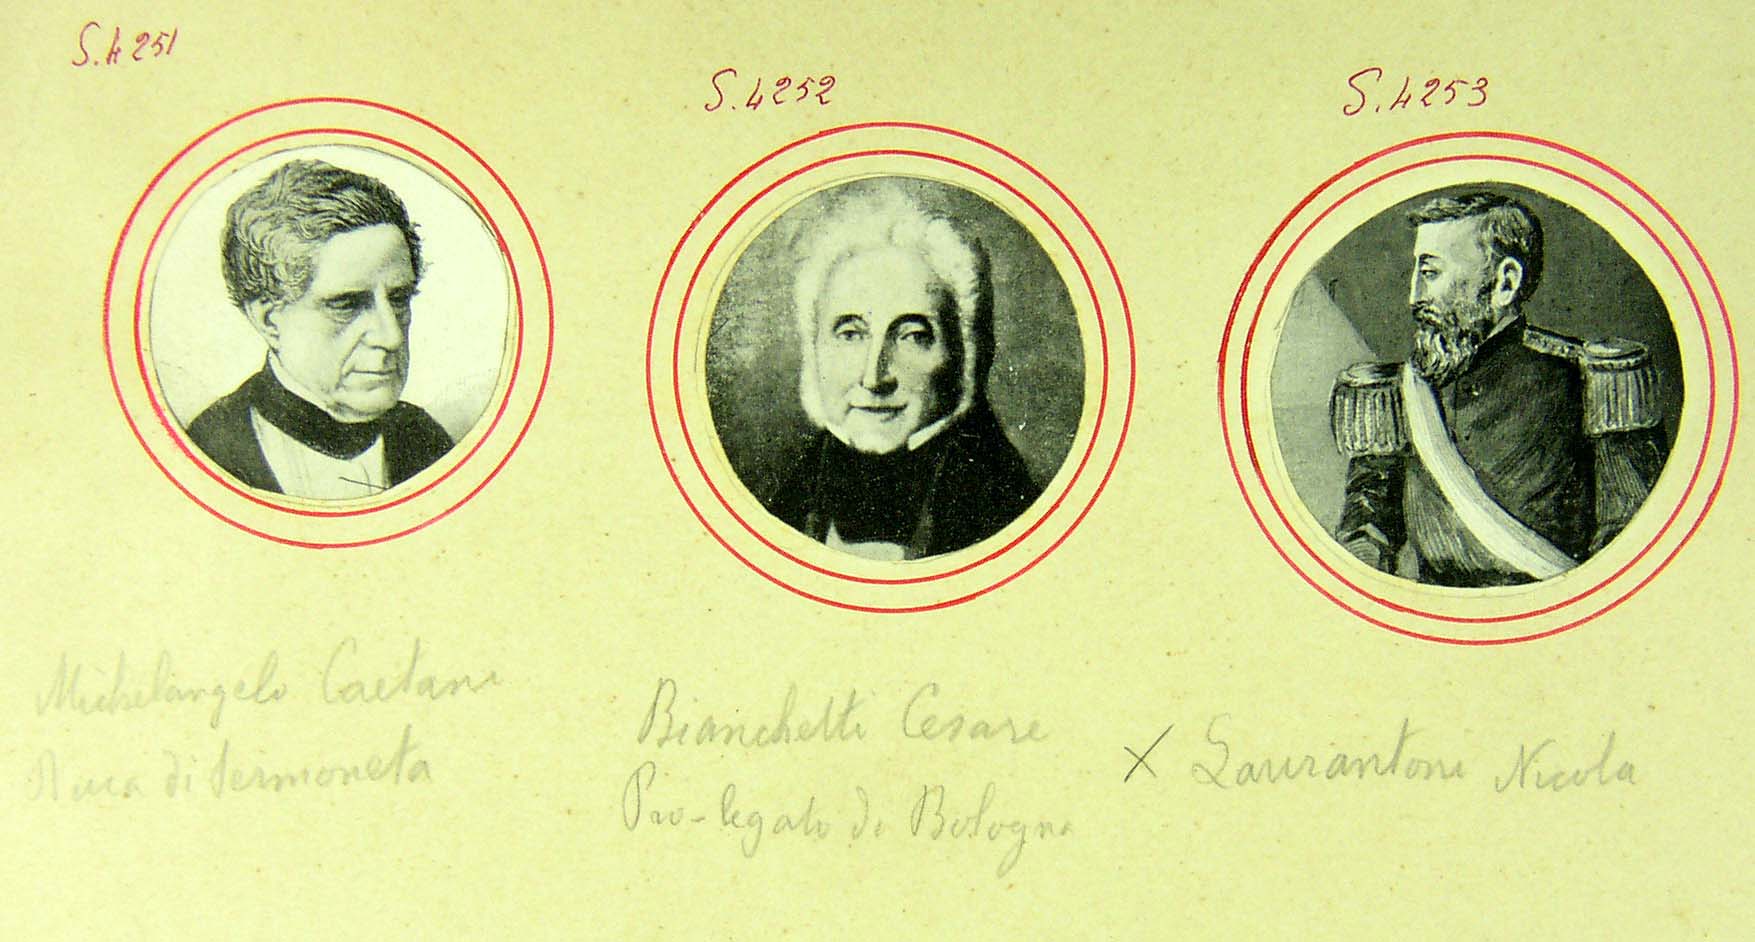 S.4251
S.4252
S.4253
Michelangelo Caetani
Duca di Sermoneta
Bianchetti Cesare
Pro-legato di Bologna
X Laurantoni Nicola